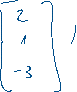 2
1
-3
,